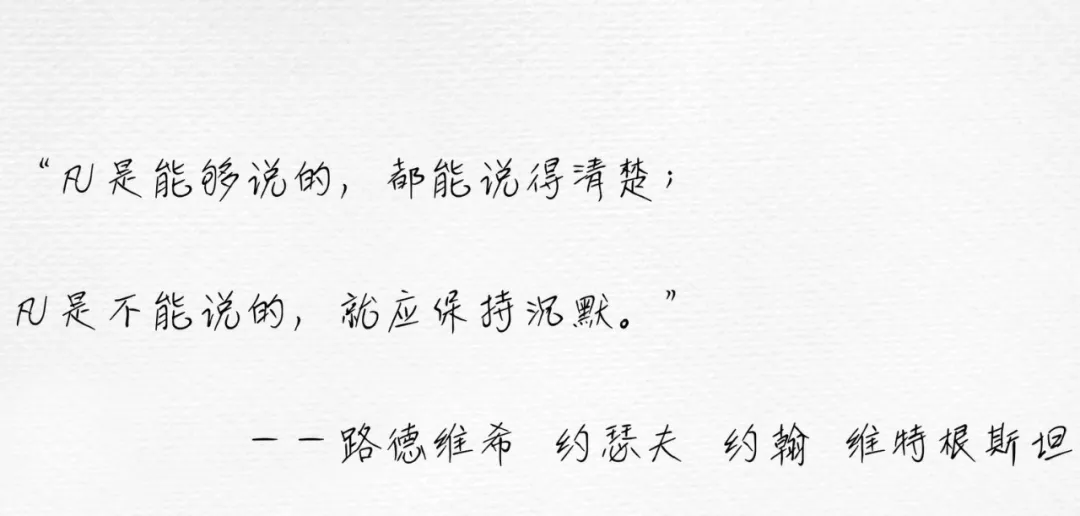 “凡是能够说的，都能说得清楚；
凡是不能说的，就应保持沉默。”
——路德维希 约瑟夫 约翰 维特根斯坦